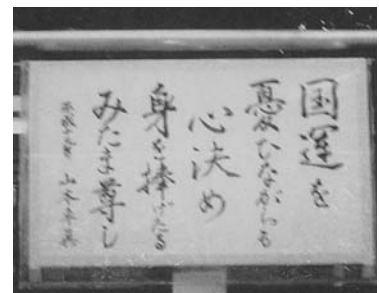 国運を
憂ひながらも
心決め
身を捧げたる
みたま尊し